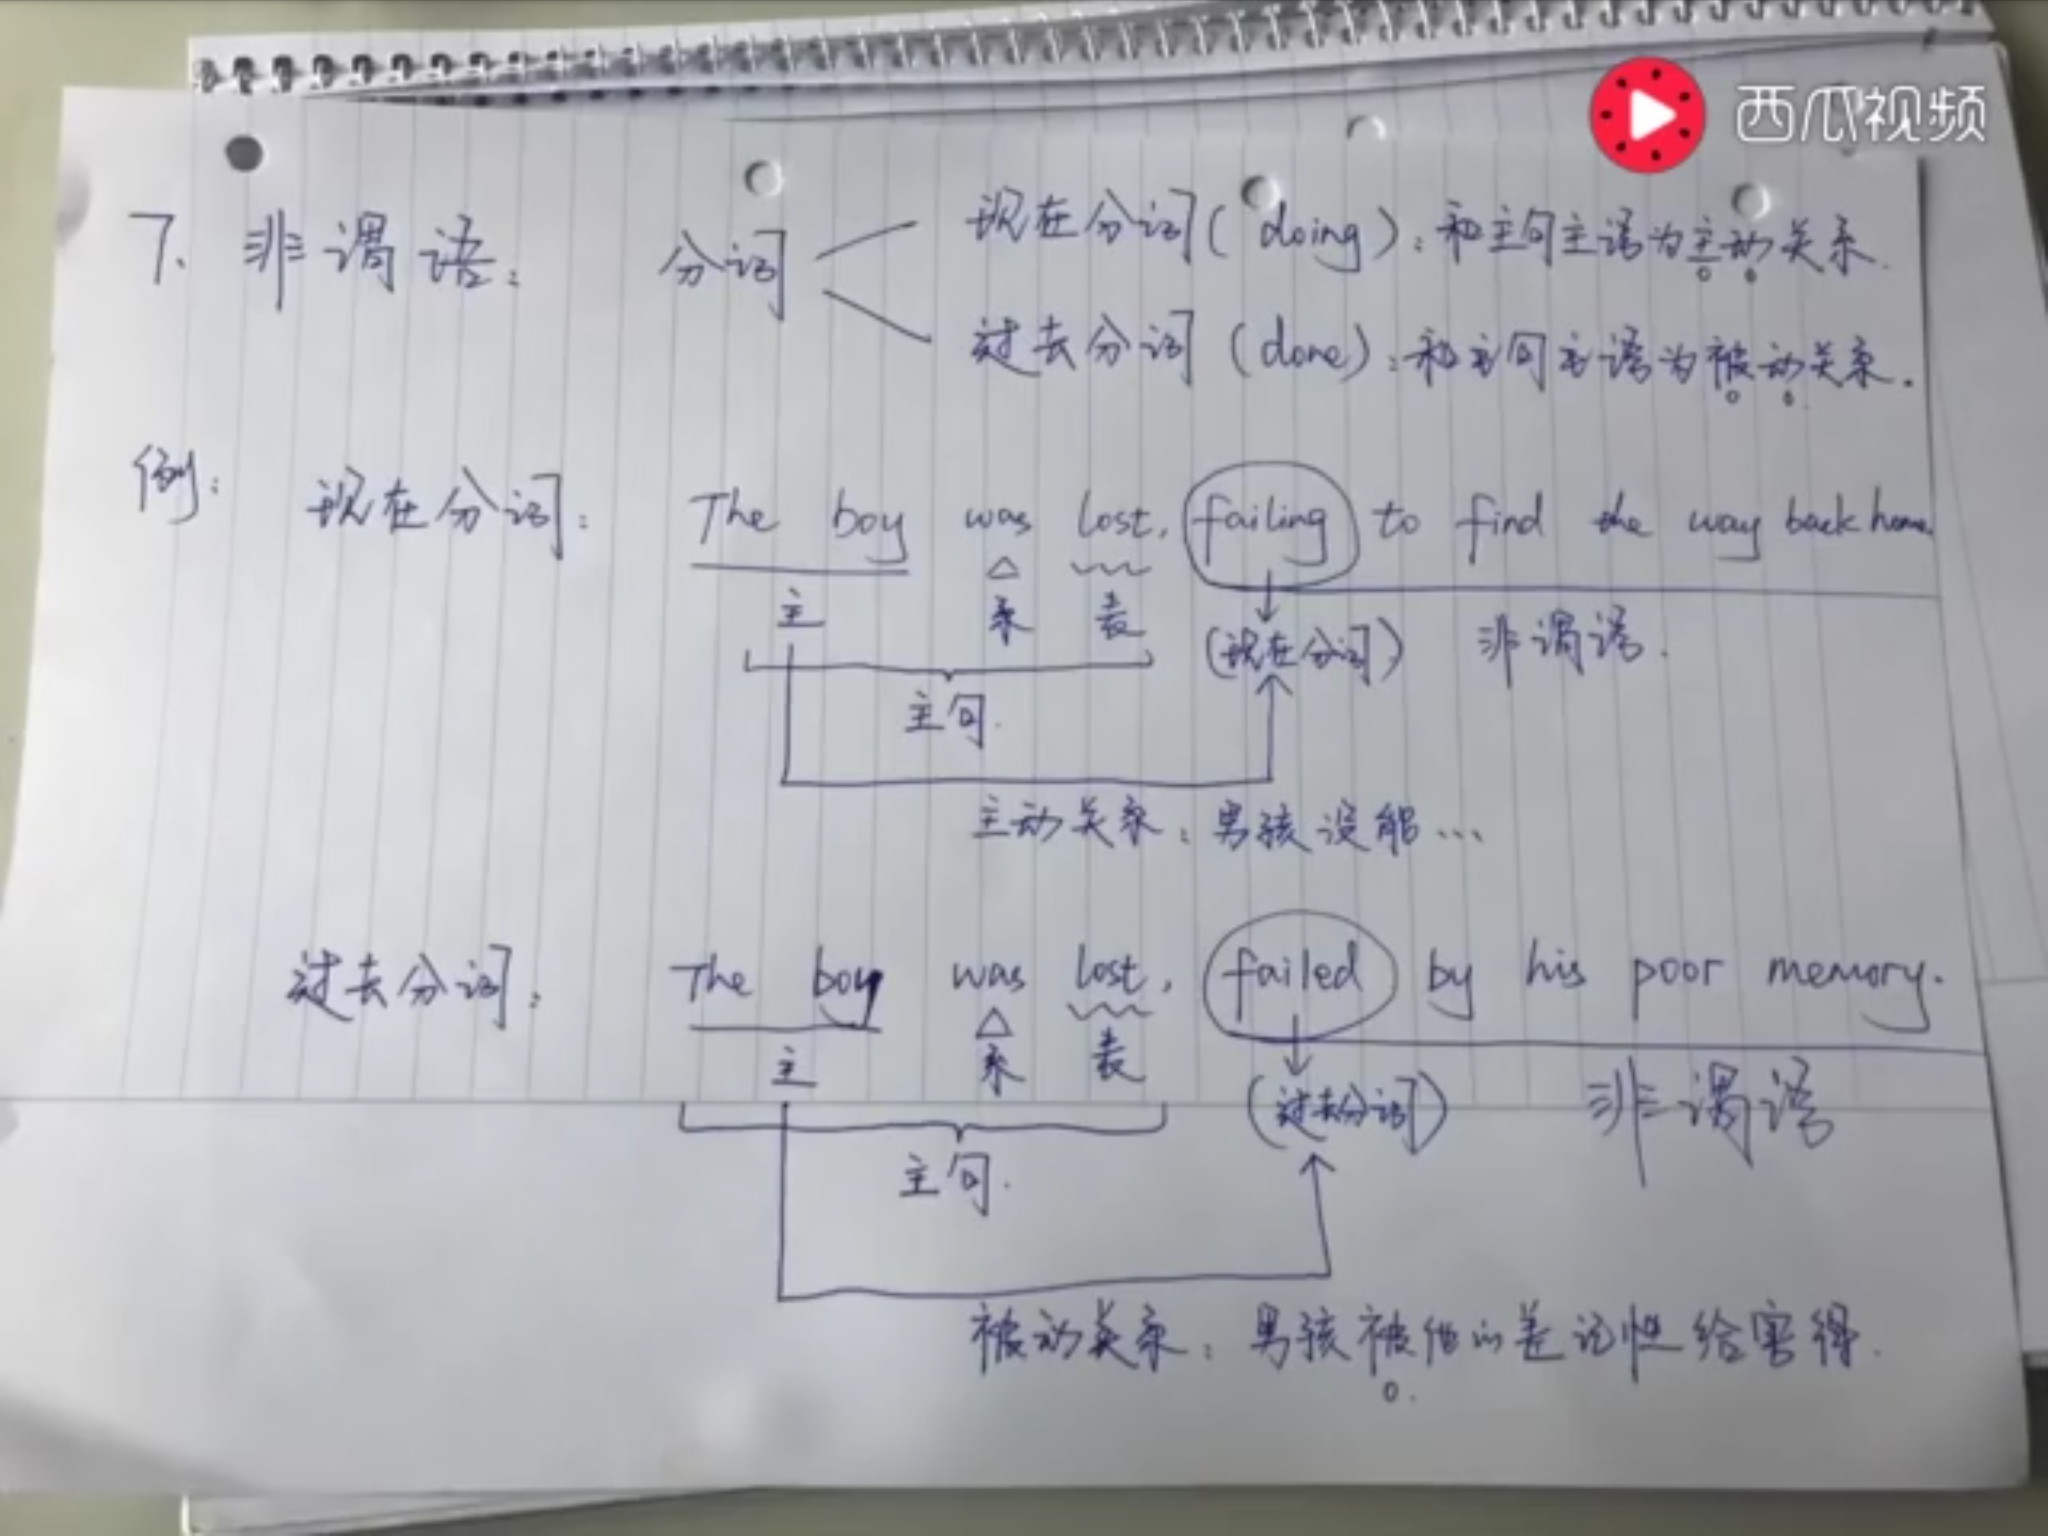 西瓜视频
7. 非谓语: 分词 现在分词(doing): 和主句主语为主动关系.
过去分词(done): 和主句主语为被动关系.
例: 现在分词: The boy was lost, failing to find the way back home.
主 系 表 (现在分词) 非谓语.
主句.
主动关系: 男孩没能...
过去分词: The boy was lost, failed by his poor memory.
主 系 表 (过去分词) 非谓语
主句.
被动关系: 男孩被他的差记性给害得.